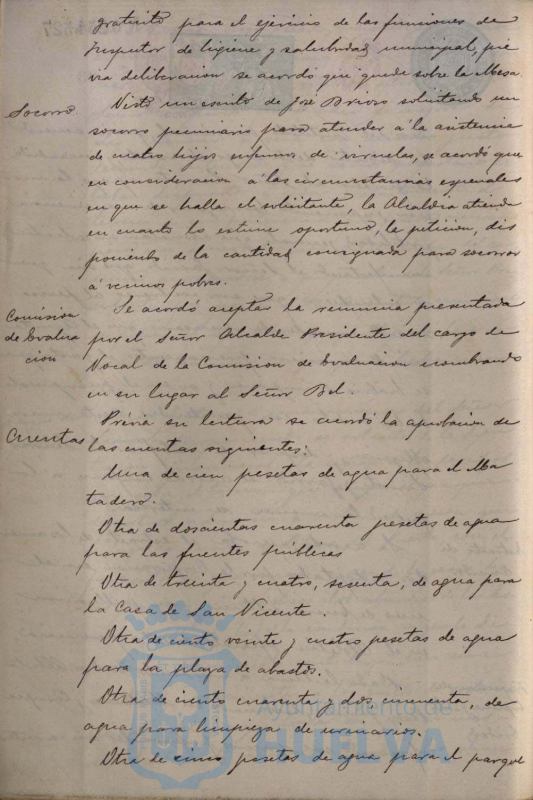 gratuito para el ejercicio de las funciones de
Inspector de higiene y salubridad municipal, pré
via deliberacion se acordó que quede sobre la Mesa.
Socorro
Visto un escrito de José solicitando un
socorro pecuniario para atender á la asistencia
de cuatro hijos enfermos de viruelas, se acordó que
en consideracion á las circunstancias especiales
en que se halla el solicitante, la Alcaldia atienda
en cuanto lo estime oportuno, la peticion, dis
poniendo de la cantidad consignada para socorrer
á vecinos pobres.
Comision
de Evalua
cion
Se acordó aceptar la renuncia presentada
por el Señor Alcalde Presidente del cargo de
Vocal de la Comision de Evaluacion nombrando
en su lugar al Señor Bel.
Cuentas
Prévia su lectura se acordó la aprobacion de
las cuentas siguientes:
Una de cien pesetas de agua para el Ma
tadero.
Otra de doscientas cuarenta pesetas de agua
para las fuentes públicas
Otra de treinta y cuatro, sesenta, de agua para
la Casa de San Vicente.
Otra de ciento veinte y cuatro pesetas de agua
para la plaza de abastos.
Otra de ciento cuarenta y dos, cincuenta, de
agua para limpieza de urinarios.
Otra de cinco pesetas de agua para el parque
Ayuntamiento de
HUELVA